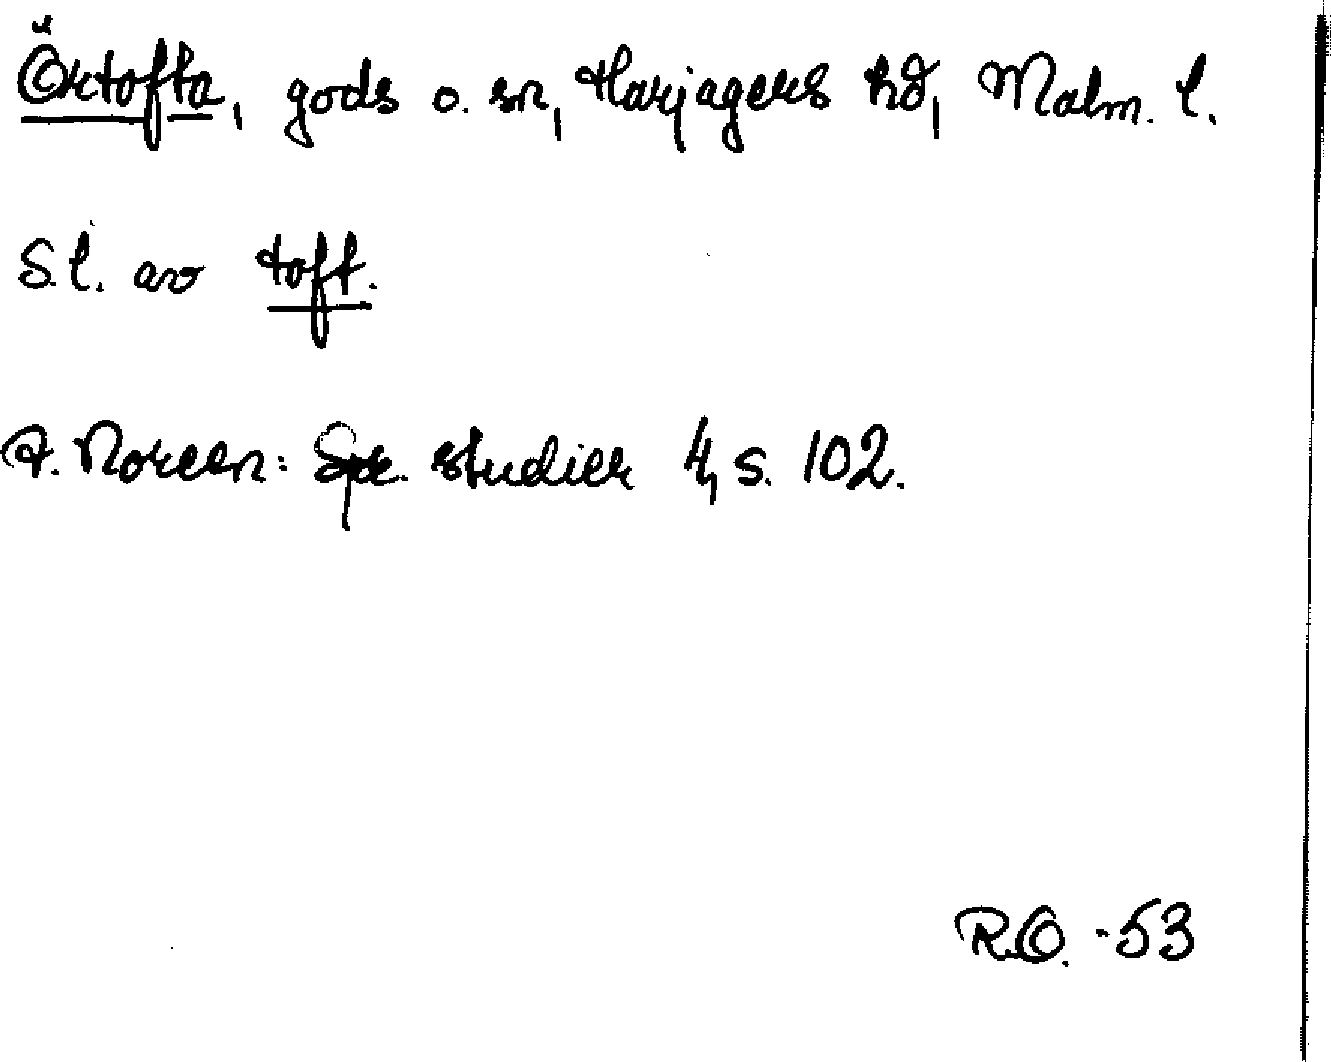 Örtofta, gods o. sn, Harjagers hd, Malm. l.
S.l. av toft.
A. Noreen: Spr. studier 4, s. 102.
R.O. -53